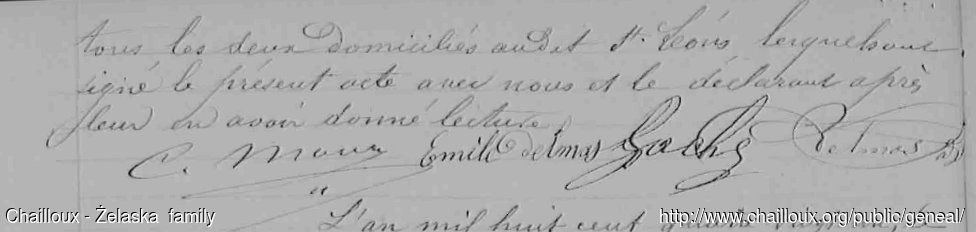 tous les deux domiciliés audit St. Léons lesquels ont
signé le présent acte avec nous et le déclarant après
leur en avoir donné lecture
C. Moux Emile Delmas Gaché Delmas
L'an mil huit cent quatre vingt
Chailloux - Želaska family
http://www.chailloux.org/public/geneal/